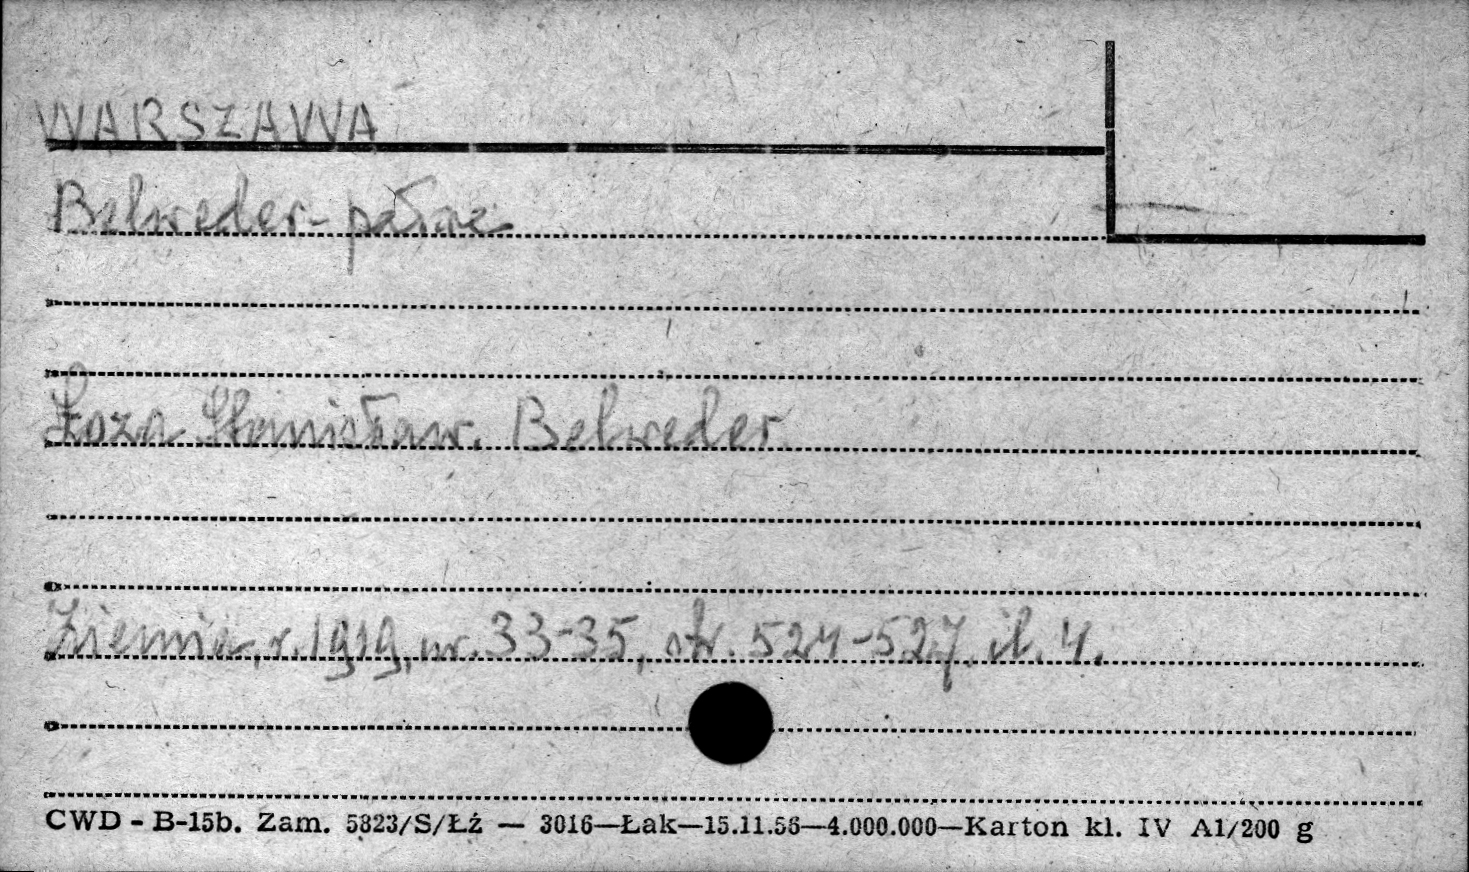 WARSZAWA
Belweder-pałac
Łoza Stanisław. Belweder
Ziemia, r. 1919, nr. 33-35, str. 524-527, il. 4.
CWD - B-15b. Zam. 5823/S/Łź — 3016—Łak—15.11.56—4.000.000—Karton kl. IV A1/200 g